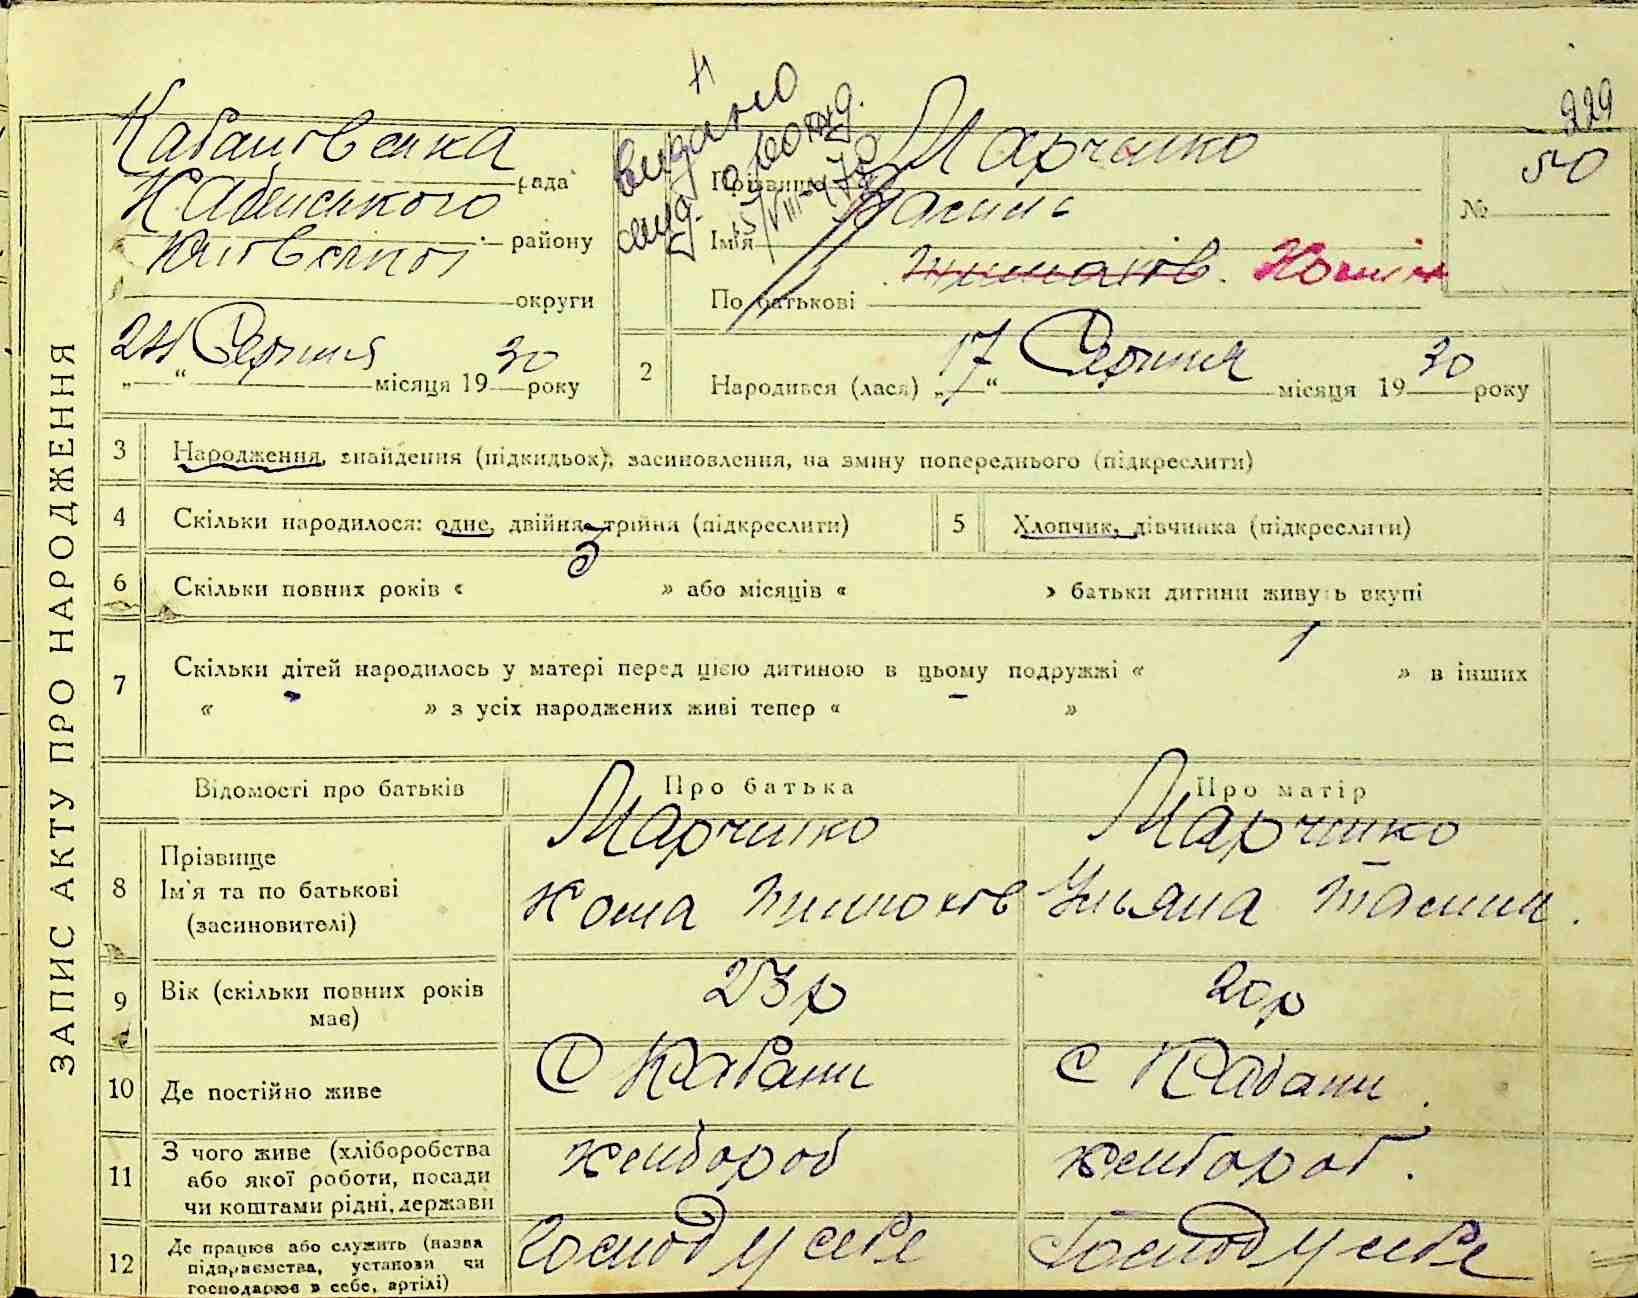 229
Кабанівська рада
Кабанського району
Київської округи
24 Серпня місяця 1930 року
видано
15/VIII-70
Прізвище Марченко
Імя Василь
По батькові
№ 50
2 Народився (лася) „17“ Серпня місяця 1930 року
ЗАПИС АКТУ ПРО НАРОДЖЕННЯ
3 Народження, знайдення (підкидьок), засиновлення, на зміну попереднього (підкреслити)
4 Скільки народилося: одне, двійня, трійня (підкреслити) 5 Хлопчик, дівчинка (підкреслити)
6 Скільки повних років « 3 » або місяців « » батьки дитини живуть вкупі
7 Скільки дітей народилось у матері перед цією дитиною в цьому подружжі « 1 » в інших
« - » з усіх народжених живі тепер « - »
Відомості про батьків Про батька Про матір
8 Прізвище Марченко Марченко
Ім'я та по батькові Хома Тимохов Ульяна
(засиновителі)
9 Вік (скільки повних років має) 23 р 20 р
10 Де постійно живе С Кабани С Кабани
11 З чого живе (хліборобства хлібороб хлібороб.
або якої роботи, посади
чи коштами рідні, держави
12 Де працює або служить (назва Господ у себе Господ у себе
підприємства, установи чи
господарює в себе, артілі)